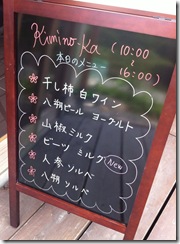 Kimino-Ka (10:00
~
16:00)
本日のメニュー
干し柿 白ワイン
八朔ピール ヨーグルト
山椒 ミルク
ビーツ ミルク New
人参 ソルベ
八朔 ソルベ